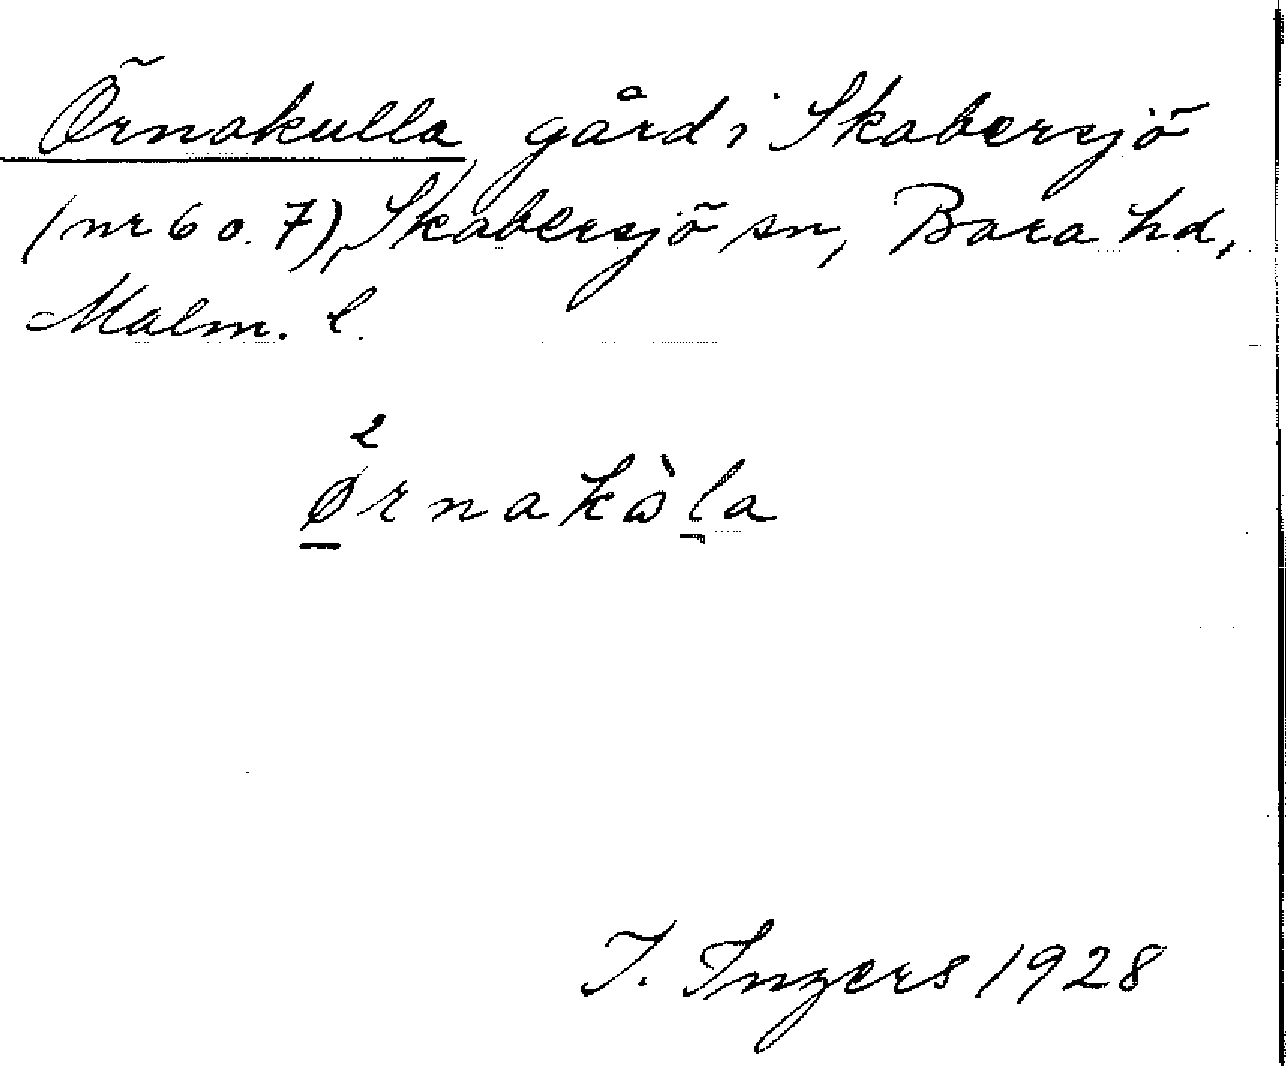 Örnakulla, gård i Skabersjö
(nr 6 o. 7), Skabersjö sn, Bara hd,
Malm. l.
2
ørnakòla
I. Ingers 1928